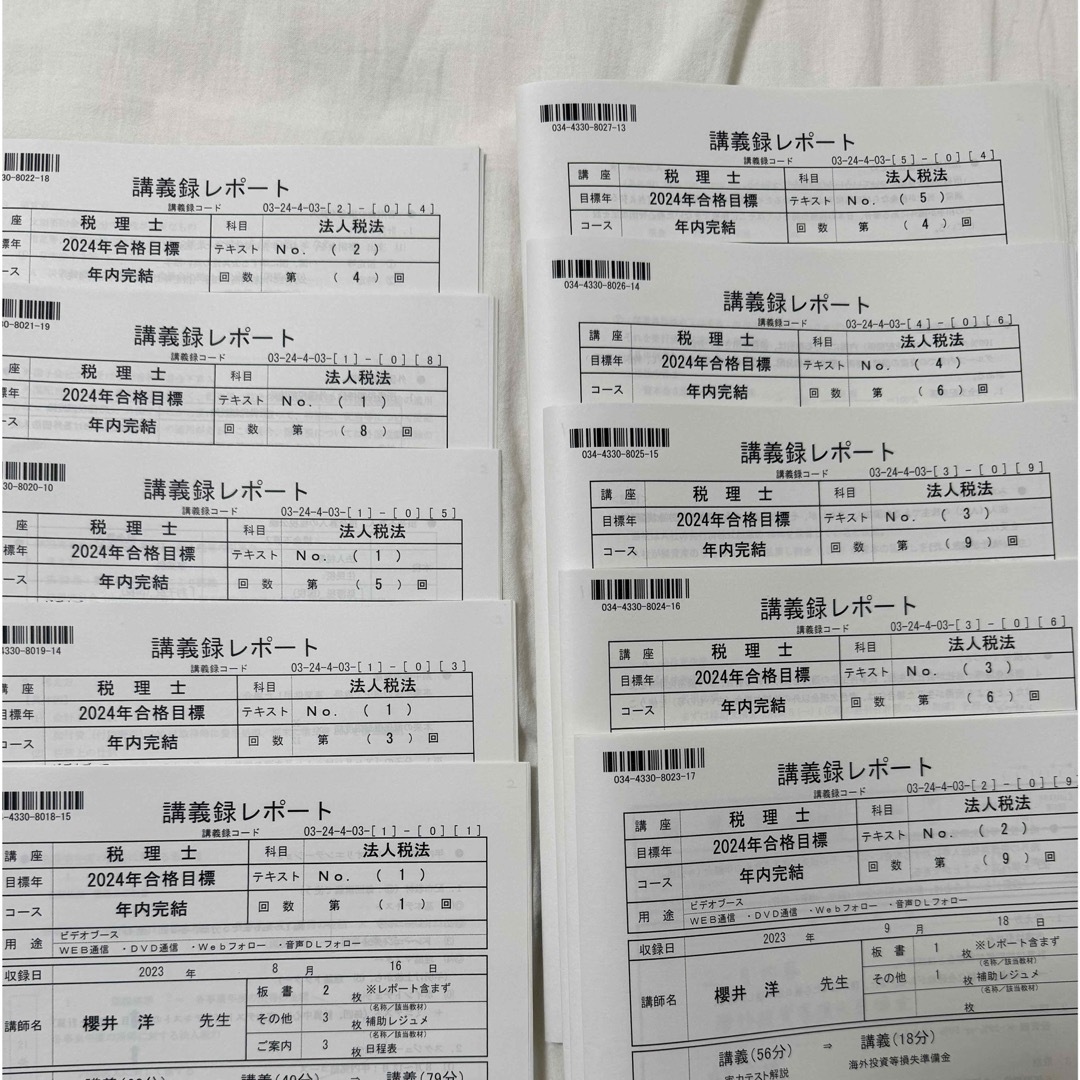 330-8022-18
講義録レポート
講義録コード 03-24-4-03-[2]-[0][4]
座 税理士 科目 法人税法
標年 2024年合格目標 テキスト No. (2)
ース 年内完結 回数 第 (4) 回
30-8021-19
講義録レポート
講義録コード 03-24-4-03-[1]-[0][8]
座 税理士 科目 法人税法
標年 2024年合格目標 テキスト No. (1)
ース 年内完結 回数 第 (8) 回
30-8020-10
講義録レポート
講義録コード 03-24-4-03-[1]-[0][5]
座 税理士 科目 法人税法
標年 2024年合格目標 テキスト No. (1)
ース 年内完結 回数 第 (5) 回
4330-8019-14
講義録レポート
講義録コード 03-24-4-03-[1]-[0][3]
講座 税理士 科目 法人税法
目標年 2024年合格目標 テキスト No. (1)
コース 年内完結 回数 第 (3) 回
4-4330-8018-15
講義録レポート
講義録コード 03-24-4-03-[1]-[0][1]
講座 税理士 科目 法人税法
目標年 2024年合格目標 テキスト No. (1)
コース 年内完結 回数 第 (1) 回
用途 ビデオブース
WEB通信 ・DVD通信 ・Webフォロー ・音声DLフォロー
収録日 2023 年 8 月 16 日
講師名 櫻井 洋 先生
板書 2 枚 ※レポート含まず
(名称/該当教材)
その他 3 枚 補助レジュメ
(名称/該当教材)
ご案内 3 枚 日程表
講義(40分) ⇒ 講義(79分)
034-4330-8027-13
講義録レポート
講義録コード 03-24-4-03-[5]-[0][4]
講座 税理士 科目 法人税法
目標年 2024年合格目標 テキスト No. (5)
コース 年内完結 回数 第 (4) 回
034-4330-8026-14
講義録レポート
講義録コード 03-24-4-03-[4]-[0][6]
講座 税理士 科目 法人税法
目標年 2024年合格目標 テキスト No. (4)
コース 年内完結 回数 第 (6) 回
034-4330-8025-15
講義録レポート
講義録コード 03-24-4-03-[3]-[0][9]
講座 税理士 科目 法人税法
目標年 2024年合格目標 テキスト No. (3)
コース 年内完結 回数 第 (9) 回
034-4330-8024-16
講義録レポート
講義録コード 03-24-4-03-[3]-[0][6]
講座 税理士 科目 法人税法
目標年 2024年合格目標 テキスト No. (3)
コース 年内完結 回数 第 (6) 回
034-4330-8023-17
講義録レポート
講義録コード 03-24-4-03-[2]-[0][9]
講座 税理士 科目 法人税法
目標年 2024年合格目標 テキスト No. (2)
コース 年内完結 回数 第 (9) 回
用途 ビデオブース
WEB通信 ・DVD通信 ・Webフォロー ・音声DLフォロー
収録日 2023 年 9 月 18 日
講師名 櫻井 洋 先生
板書 1 枚 ※レポート含まず
(名称/該当教材)
その他 1 枚 補助レジュメ
(名称/該当教材)
枚
講義(56分) ⇒ 講義(18分)
実力テスト解説 海外投資等損失準備金